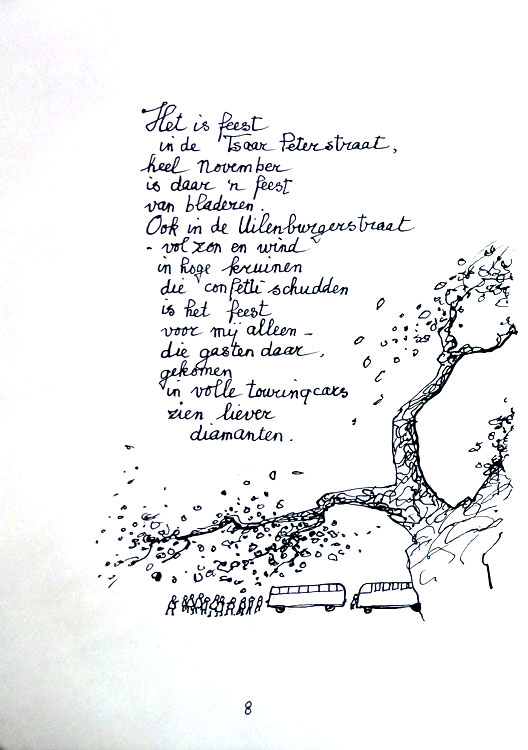 Het is feest
in de Tsaar Peterstraat,
heel November
is daar 'n feest
van bladeren.
Ook in de Uilenburgerstraat
- vol zon en wind
in hoge kruinen
die confetti schudden
is het feest
voor mij alleen -
die gasten daar,
gekomen
in volle touringcars
zien liever
diamanten.
8